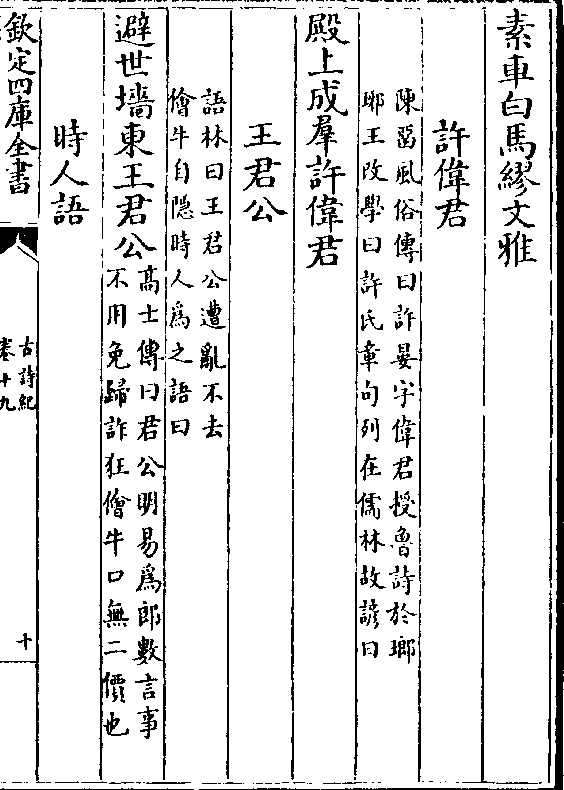 素車白馬繆文雅
許偉君
陳留風俗傳曰許晏字偉君授魯詩於瑯
琊王改學曰許氏章句列在儒林故諺曰
殿上成羣許偉君
王君公
語林曰王君公遭亂不去
儈牛自隠時人為之語曰
避世墻東王君公
髙士傳曰君公明易為郎數言事
不用免歸詐狂儈牛口無二價也
時人語
欽定四庫全書
古詩紀
卷十九
十